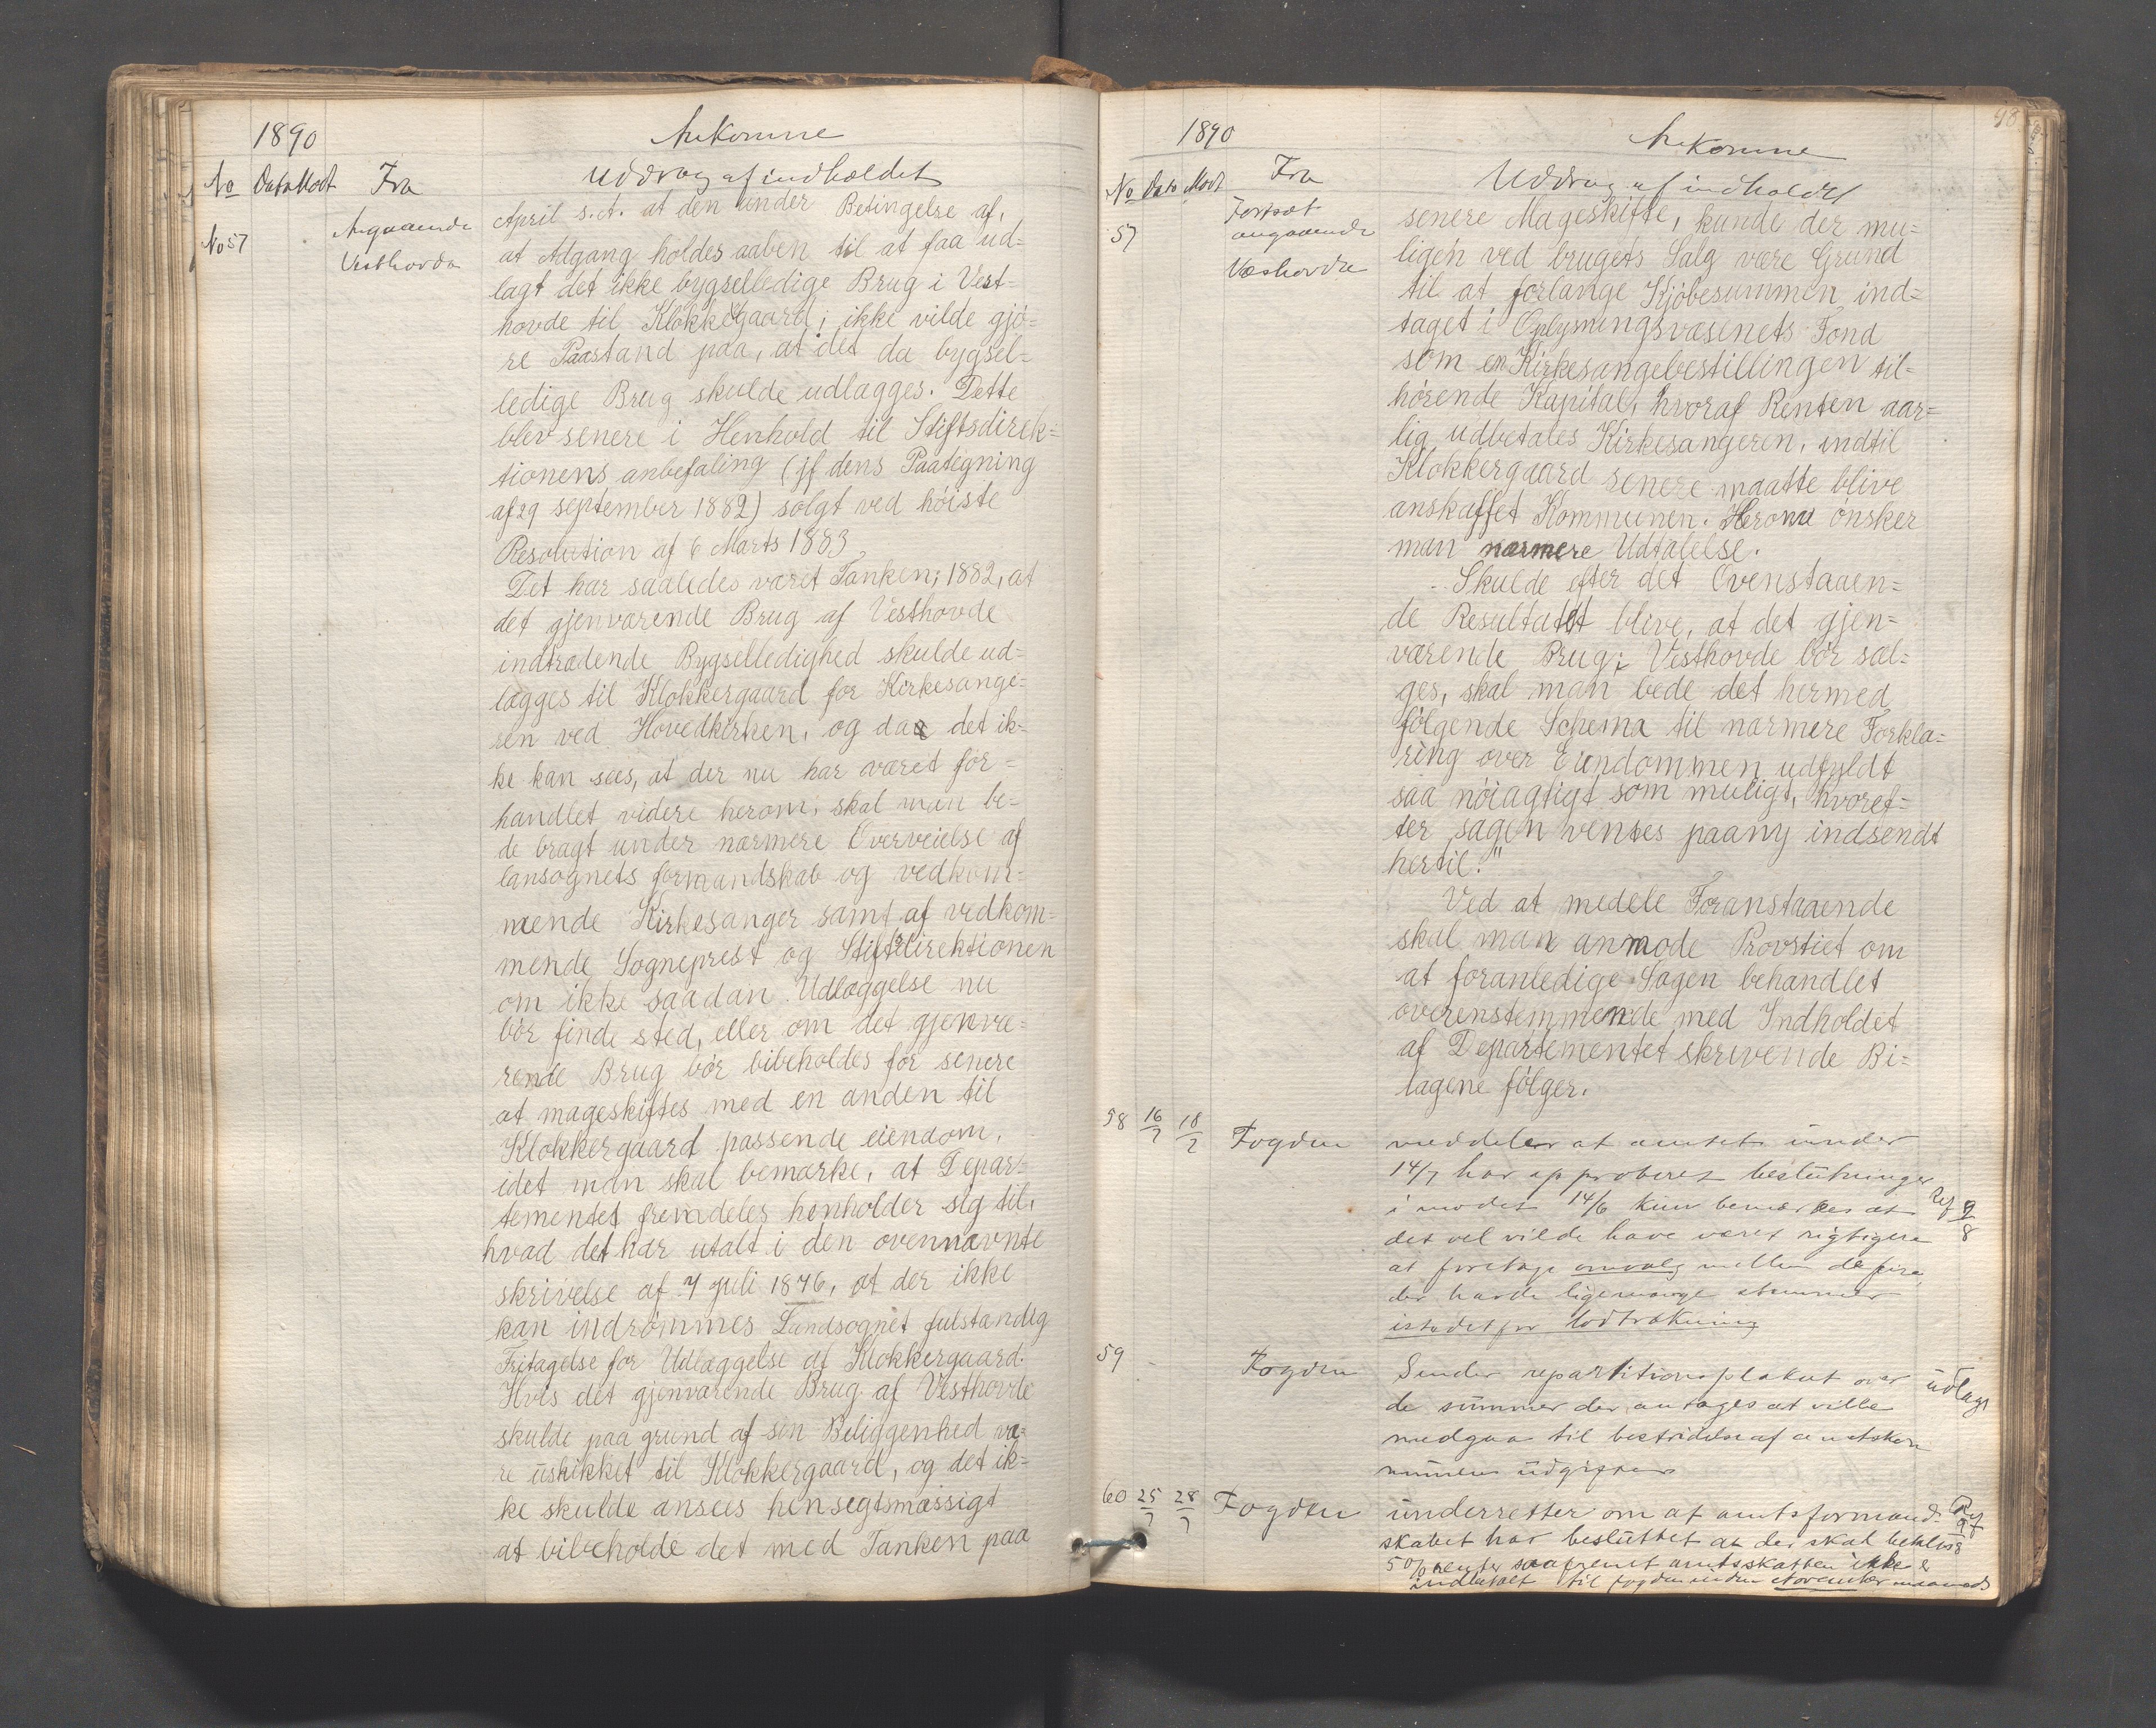 1890
Ankomne
No Dato Modt Fra Uddrag af indholdet
No 57
Angaaende
Vesthovde
April s. A. at den under Betingelse af,
at Adgang holdes aaben til at faa ud=
lagt det ikke bygselledige Brug i Vest=
hovde til Klokkergaard; ikke vilde gjø=
re Paastand paa, at det da bygsel=
ledige Brug skulde udlægges. Dette
blev senere i Henhold til Stiftsdirek=
tionens anbefaling (jf dens Paategning
af 29 september 1882) solgt ved høiste
Resolution af 6 Marts 1883
Det har saaledes været Tanken i 1882, at
det gjenværende Brug af Vesthovde
indtrædende Bygselledighed skulde ud=
lægges til Klokkergaard for Kirkesange=
ren ved Hovedkirken, og da det ik=
ke kan sees, at der nu har været for=
handlet videre herom, skal man be=
de bragt under nærmere Overveielse af
lansognets formandskab og vedkom=
mende Kirkesanger samt af vedkom=
mende Sogneprest og Stiftsdirektionen
om ikke saadan Udlæggelse nu
bør finde sted, eller om det gjenvæ=
rende Brug bør bibeholdes for senere
at mageskiftes med en anden til
Klokkergaard passende eiendom,
idet man skal bemærke, at Depar=
tementet fremdeles henholder sig til,
hvad det har utalt i den ovennævnte
skrivelse af 7 juli 1876, at der ikke
kan indrømmes Landsognet fulstændig
Fritagelse for Udlæggelse af Klokkergaard.
Hvis det gjenværende Brug af Vesthovde
skulde paa grund af sin Beliggenhed væ=
re uskikket til Klokkergaard, og det ik=
ke skulde ansees hensegtsmæssigt
at bibeholde det med Tanken paa
98
1890
Ankomne
No Dato Modt Fra Uddrag af indholdet
57
Fortsat
angaaende
Væshovde
senere Mageskifte, kunde der mu=
ligen ved brugets Salg være Grund
til at forlange Kjøbesummen ind=
taget i Oplysningsvæsenets Fond
som en Kirkesangebestillingen til=
hørende Kapital, hvoraf Renten aar=
lig udbetales Kirkesangeren, indtil
Klokkergaard senere maatte blive
anskaffet Kommunen. Herom ønsker
man nærmere Udtalelse.
Skulde efter det Ovenstaaen=
de Resultatet blive, at det gjen=
værende Brug i Vesthovde bør sæl=
ges, skal man bede det hermed
følgende Schema til nærmere Forkla=
ring over Eiendommen udfyldt
saa nøiagtigt som muligt, hvoref=
ter sagen ventes paany indsendt
hertil."
Ved at medele Foranstaaende
skal man anmode Provstiet om
at foranledige Sagen behandlet
overenstemmende med Indholdet
af Departementet skrivende Bi=
lagene følger.
58 16/7 18/7 Fogden meddeler at amtet under
14/7 har approberet beslutninger
i mødet 14/6 kun bemærkes at Ref 9/8
det vel vilde have været rigtigere
at foretage omvalg mellem de fire,
der havde ligemange stemmer
istedetfor lodtrækning
59 Fogden Sender repartitionsplakat over udlagt
de summer der antages at ville
medgaa til bestridelse af amtskom
munens udgifter
60 25/7 28/7 Fogden underretter om at amtsformand= Ref 9/8
skabet har besluttet at der skal betales
5 0/0 renter saafremt amtsskatten ikke e
indbetalt til fogden inden November maaneds